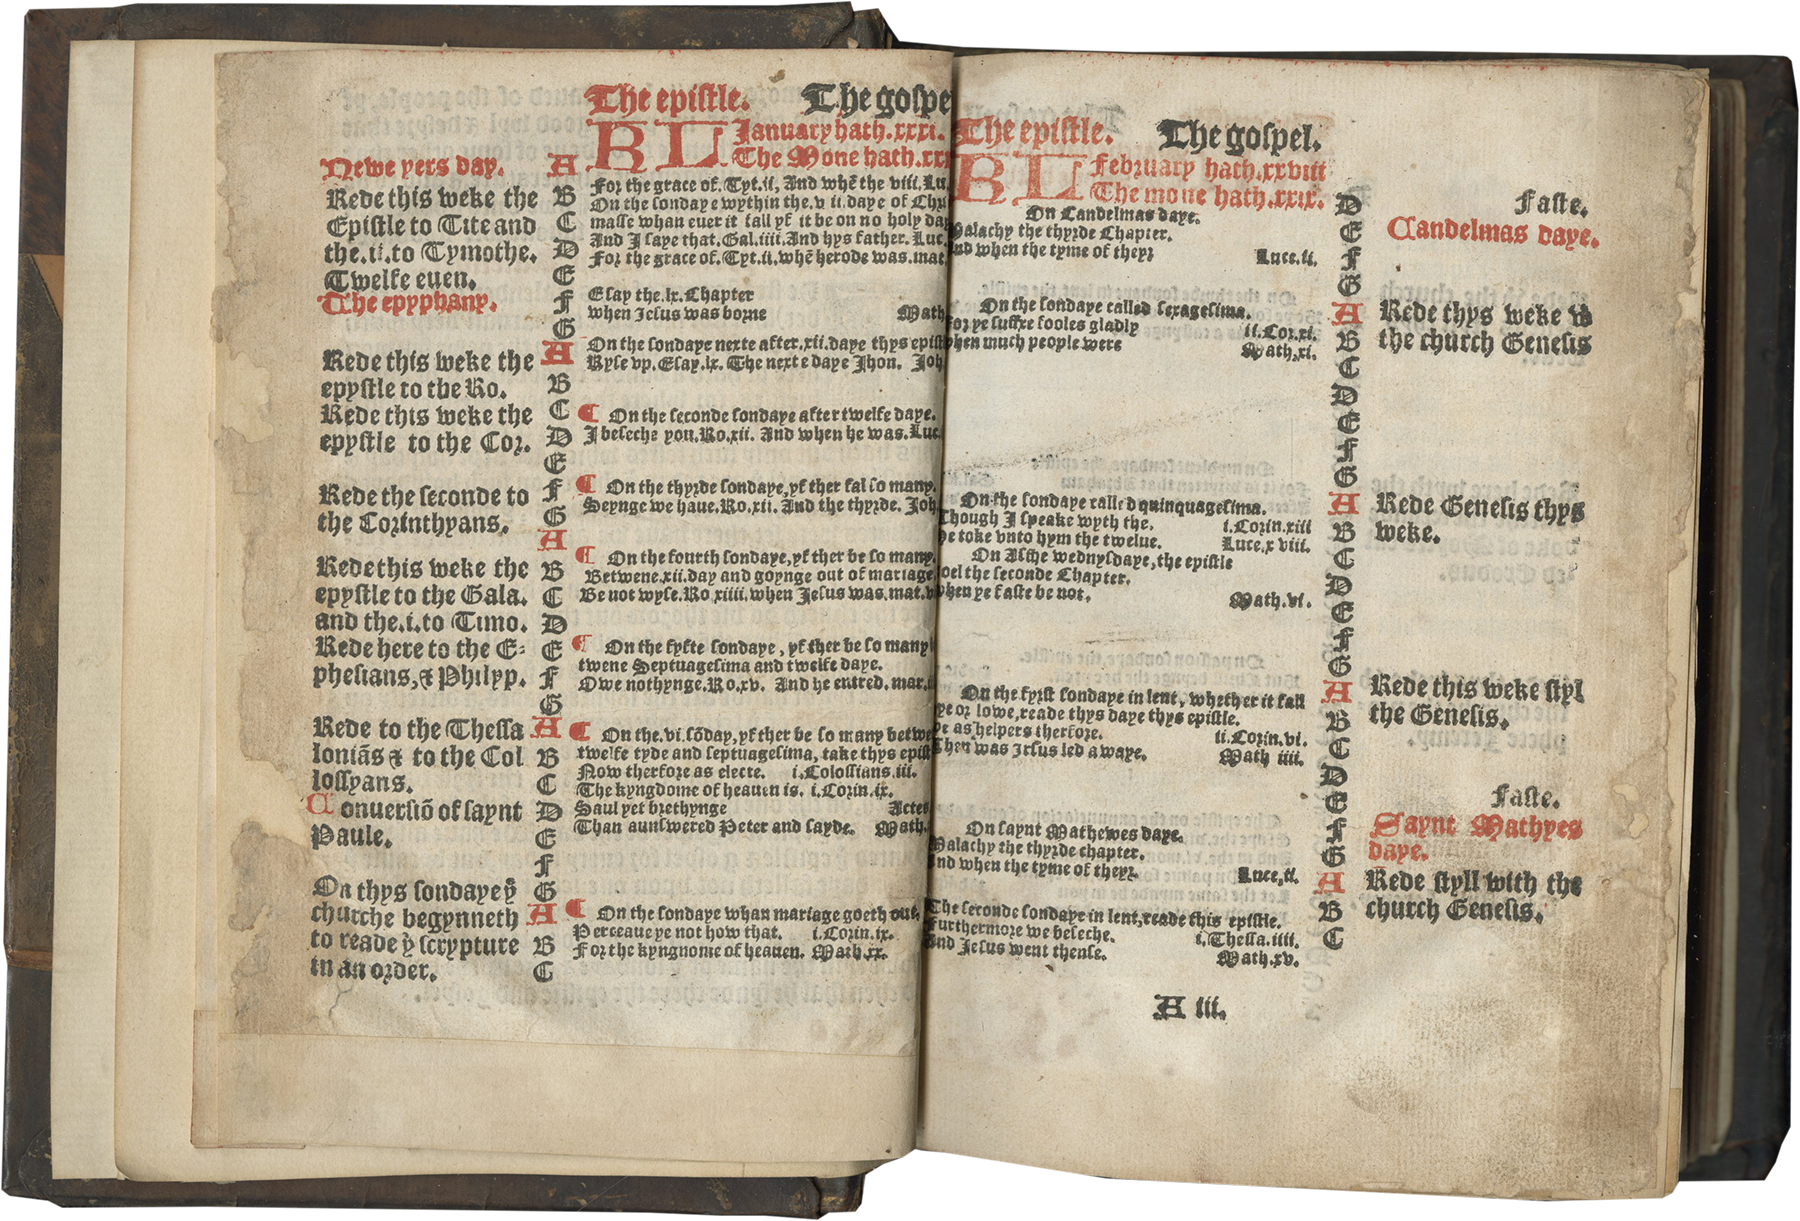 The epistle. The gospe
KL January hath.xxxi.
The Mone hath.xx
Newe yers day.
Rede this weke the
Epistle to Tite and
the.ii.to Tymothe.
Twelfe euen.
The epyphany.
Rede this weke the
epystle to the Ro.
Rede this weke the
epystle to the Cor.
Rede the seconde to
the Corinthyans.
Rede this weke the
epystle to the Gala.
and the.i.to Timo.
Rede here to the E-
phesians,& Philyp.
Rede to the Thessa
loniãs & to the Col
lossyans.
Conuersiõ of saynt
Paule.
On thys sondaye ẏ
churche begynneth
to reade ẏ scrypture
in an order.
A
B
C
D
E
F
G
A
B
C
D
E
F
G
A
B
C
D
E
F
G
A
B
C
D
E
F
G
A
B
C
For the grace of.Tyt.ii, And whẽ the viii.Lu.
On the sondaye wythin the.v ii.daye of Chri
masse whan euer it fall yf it be on no holy day
And I saye that.Gal.iiii.And hys father.Luc.
For the grace of.Tyt.ii.whẽ herode was.mat
Esay the.lx.Chapter
when Jesus was borne Math
On the sondaye nexte after.xii.daye thys epist
Ryse vp.Esay.lx.The nexte daye Jhon. Joh
¶ On the seconde sondaye after twelfe daye.
I beseche you.Ro.xii. And when he was.Luc
¶ On the thyrde sondaye,yf ther fal so many.
Seynge we haue.Ro.xii. And the thyrde. Joh
¶ On the fourth sondaye,yf ther be so many.
Betwene.xii.day and goynge out of mariage
Be not wyse.Ro xiiii.when Jesus was.mat.v
¶ On the fyfte sondaye, yf ther be so many
twene Septuagesima and twelfe daye.
Owe nothynge.Ro.xv. And he entred.mar.
¶ On the.vi.sõday,yf ther be so many betwe
twelfe tyde and septuagesima, take thys epist
Now therfore as electe. i.Colossians.iii.
The kyngdome of heauen is. i.Corin.ix.
Saul yet brethynge Actes
Than aunswered Peter and sayde. Math.
¶ On the sondaye whan mariage goeth out.
Perceaue ye not how that. i.Corin.ix.
For the kyngnome of heauen. Math.xx.
The epistle. The gospel.
KL February hath.xxviii
The mone hath.xxix.
On Candelmas daye.
Malachy the thyrde Chapter.
And when the tyme of theyr Luce.ii.
On the sondaye called sexagesima.
For ye suffre fooles gladly ii.Cor.xi.
when much people were Math.xi.
On the sondaye called quinquagesima.
Though I speake wyth the. i.Corin.xiii
He toke vnto hym the twelue. Luce.x viii.
On Asche wednysdaye,the epistle
Joel the seconde Chapter.
when ye faste be not. Math.vi.
On the fyrst sondaye in lent, whether it fall
hye or lowe,reade thys daye thys epistle.
We as helpers therfore. ii.Corin.vi.
Then was Jesus led awaye. Math iiii.
On saynt Mathewes daye.
Malachy the thyrde chapter.
And when the tyme of theyr. Luce,ii.
The seconde sondaye in lent,reade this epistle.
Furthermore we beseche. i.Thessa.iiii.
And Jesus went thense. Math.xv.
D
E
F
G
A
B
C
D
E
F
G
A
B
C
D
E
F
G
A
B
C
D
E
F
G
A
B
C
Faste.
Candelmas daye.
Rede thys weke
the church Genesis
Rede Genesis thys
weke.
Rede this weke styl
the Genesis.
Faste.
Saynt Mathyes
daye.
Rede styll with the
church Genesis.
A iii.